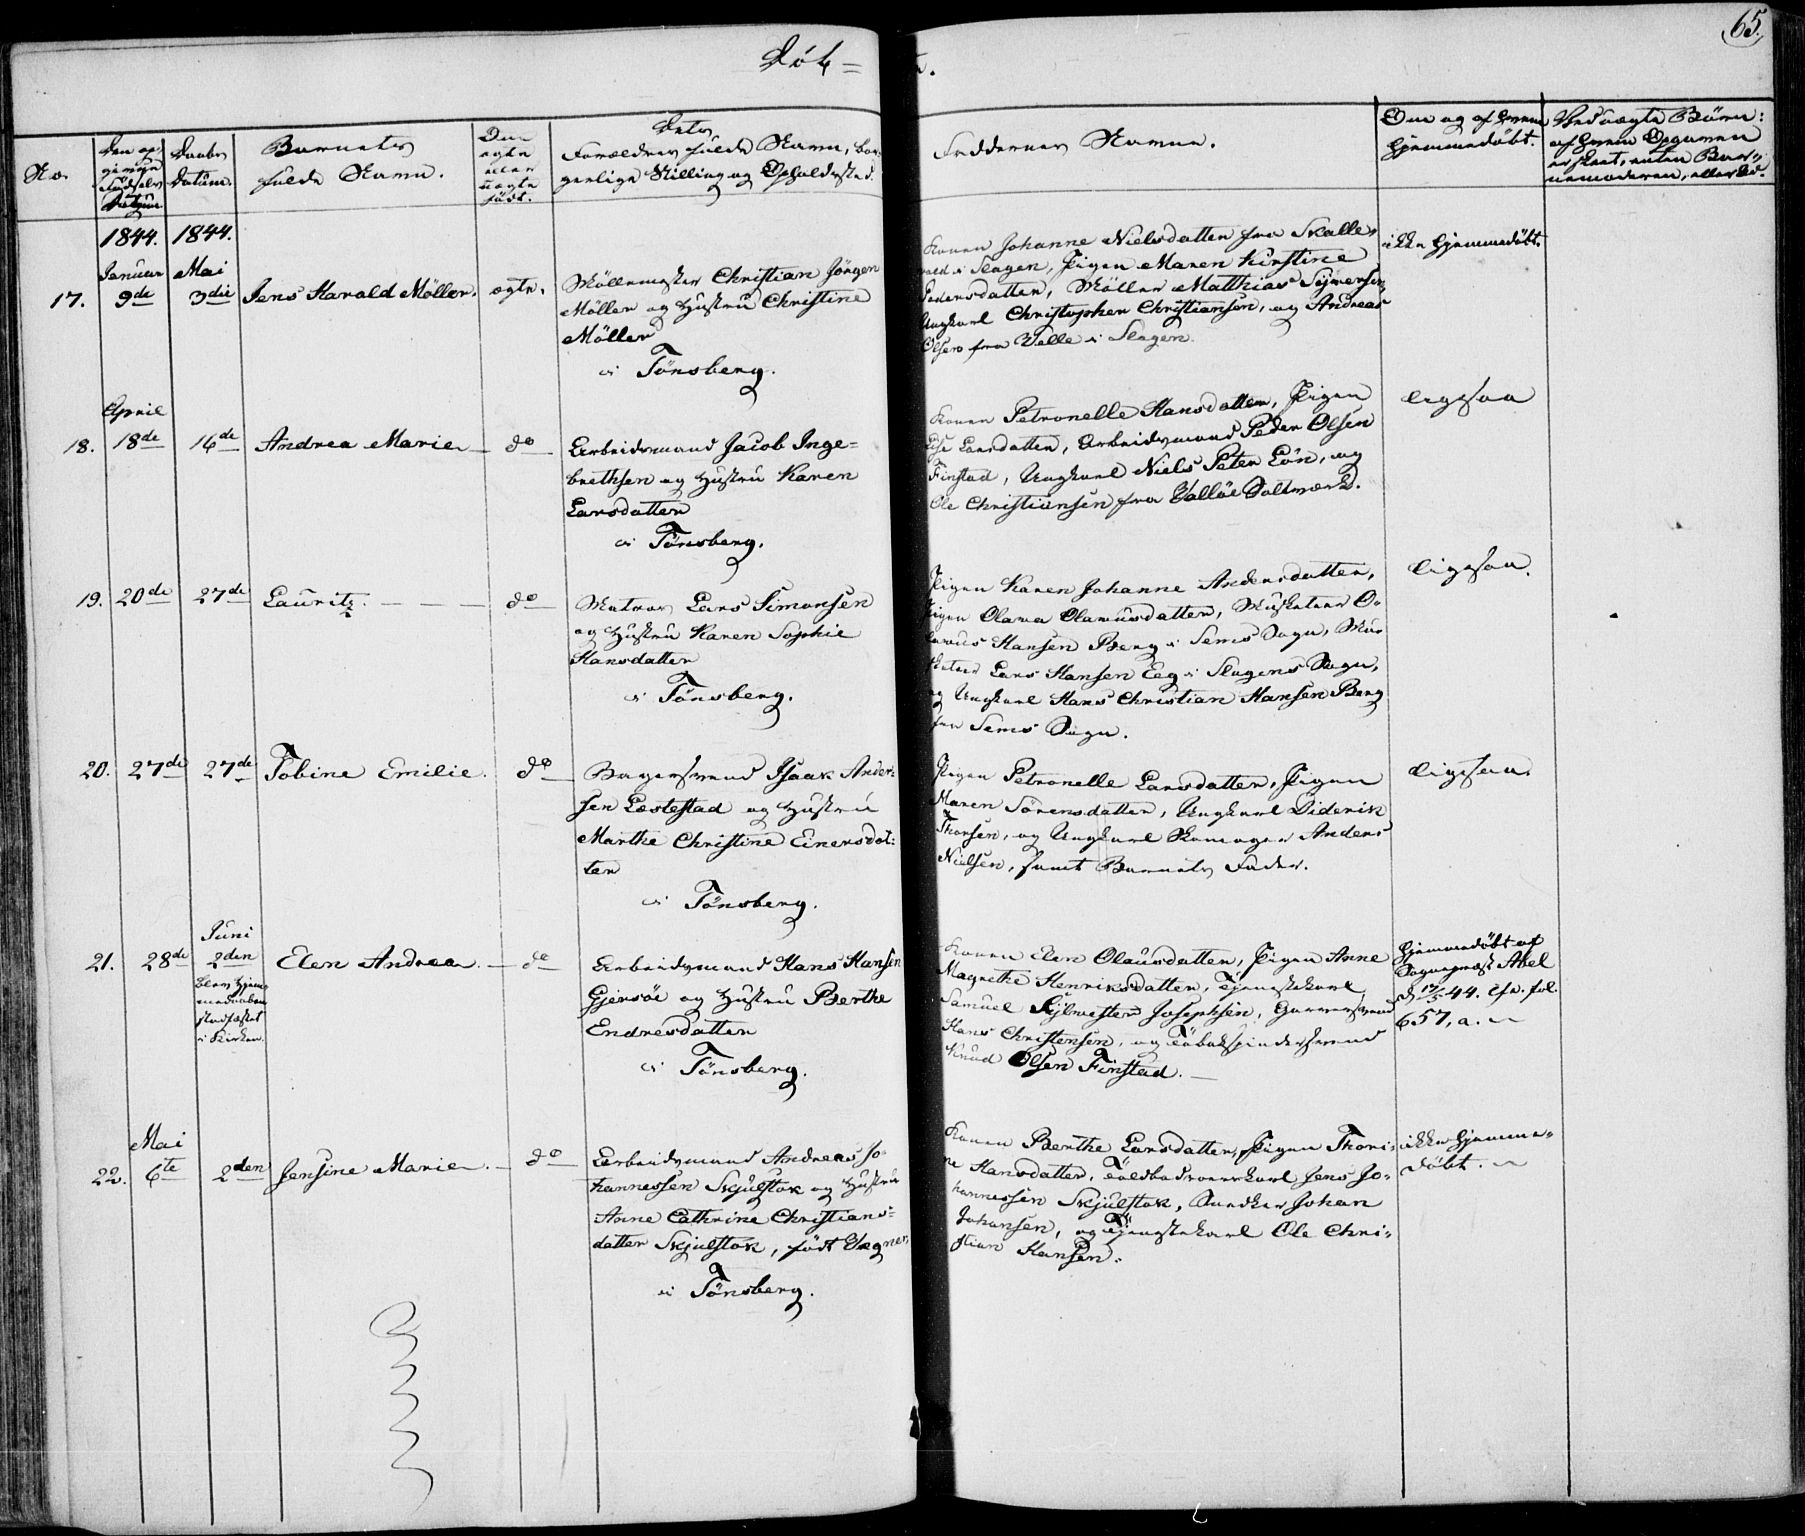 65.
Døb=
te.
No.
Den op-
givne
Fødsels
Datum
Daabs
Datum.
Barnets
fulde Navn.
Om
ægte
eller
uægte
født.
Dets
Forældres fulde Navn, bor-
gerlige Stilling og Opholdssted.
Faddernes Navne.
Om og af hvem
hjemmedøbt.
Ved uægte Börn:
af hvem Opgaven
er skeet, enten Bar-
nemoderen, eller Ad.
1844. 1844.
17.
Januar
9de
Mai
3die
Jens Harald Möller.
ægte.
Möllemester Christian Jörgen
Möller og Hustru Christine
Möller
i Tönsberg.
Konen Johanne Nielsdatter fra Skalle-
vold i Slagen, Pigen Maren Kirstine
Pedersdatter, Möller Matthias Syversen,
Ungkarl Christopher Christiansen, og Andreas
Olsen fra Velle i Slagen.
ikke hjemmedöbt.
18.
April
18de
16de
Andrea Marie
do
Arbeidsmand Jacob Inge=
brethsen og Hustru Karen
Larsdatter
i Tönsberg.
Konen Petronelle Hansdatter, Pigen
Else Larsdatter, Arbeidsmand Peder Olsen
Finstad, Ungkarl Niels Peter Lön, og
Ole Christiansen fra Valløe Saltværk.
ligesaa
19.
20de
27de
Lauritz.
do
Matros Lars Simonsen
og Hustru Karen Sophie
Hansdatter
i Tönsberg.
Pigen Karen Johanne Andersdatter,
Pigen Olava Olavusdatter, Musketeer O-
lavus Hansen Berg i Sems Sogn, Mus-
keteer Lars Hansen Eeg i Slagens Sogn,
og Ungkarl Hans Christian Hansen Berg
fra Sems Sogn.
ligesaa.
20.
27de
27de
Tobine Emilie.
do
Bagersvend Isaak Ander-
sen Lestestad og Hustru
Marthe Christine Einersdat-
ter
i Tönsberg.
Pigen Petronelle Larsdatter, Pigen
Maren Sörensdatter, Ungkarl Diderik
Thorsen, og Ungkarl Skomager Anders
Nielsen, samt Barnets Fader.
ligesaa.
21.
28de
Juni
2den
blev Hjem-
medaaben
stadfæstet
i Kirken.
Elen Andrea.
do
Arbeidsmand Hans Hansen
Gjersöe og Hustru Berthe
Endresdatter
i Tönsberg.
Konen Elen Olausdatter, Pigen Anne
Magrethe Henriksdatter, Tjenestekarl
Samuel Sylvester Josephsen, Garversvend
Hans Christensen, og Tobakspindersvend
Knud Olsen Finstad.
Hjemmedöbt af
Sogneprest Abel
d. 44. cfr. fol.
657, a.
22.
Mai
6te
2den
Jensine Marie.
do
Arbeidsmand Andreas Jo-
hannessen Skjulstok og Hustru
Anne Cathrine Christians=
datter Skjulstok, født Vegner,
i Tönsberg.
Konen Berthe Larsdatter, Pigen Thori-
ne Hansdatter, Toldbadroerskarl Jens Jo-
hannessen Skjulstok, Snedker Johan
Johansen, og Tjenestekarl Ole Chri-
stian Hansen.
ikke hjemme-
döbt.